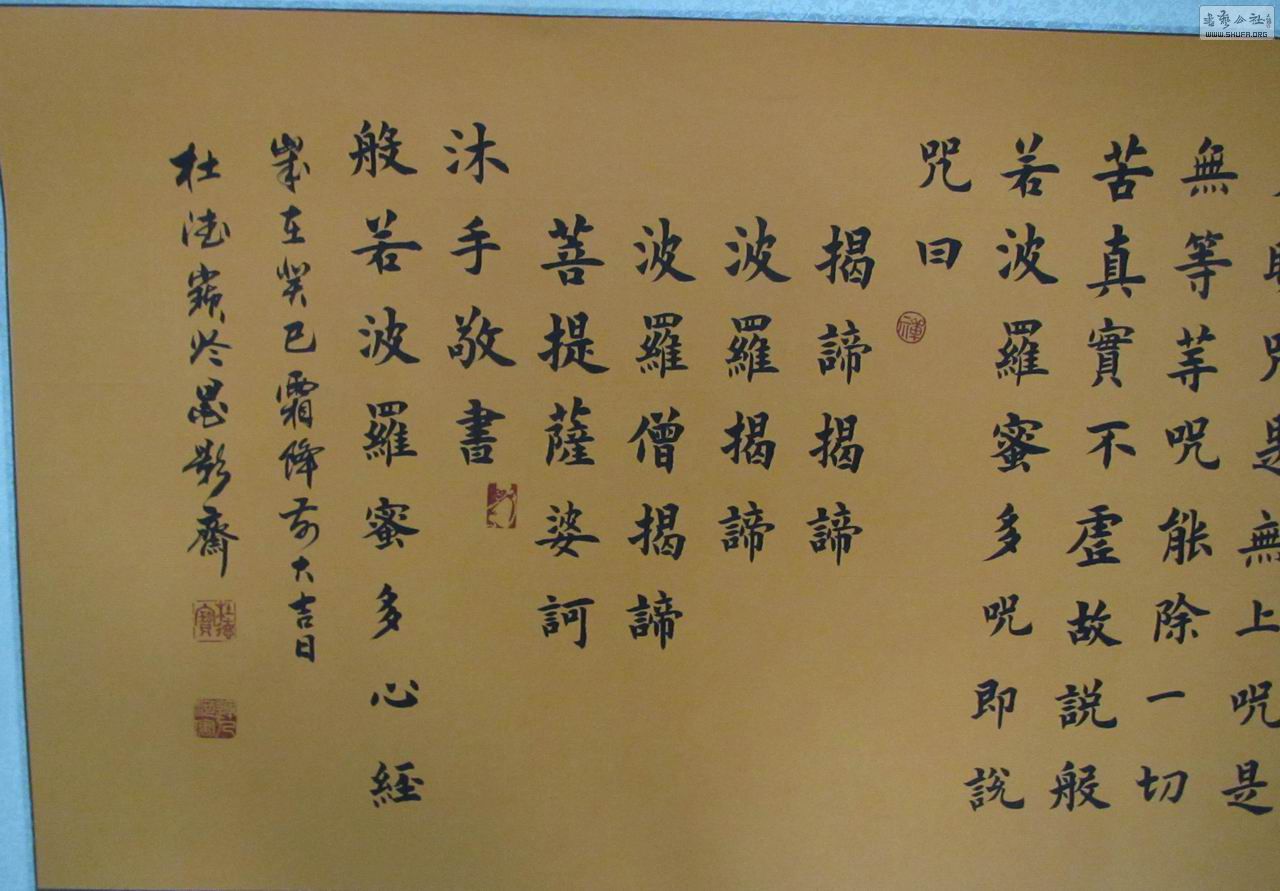 咒是無上咒是
無等等咒能除一切
苦真實不虛故說般
若波羅蜜多咒即說
咒曰
揭諦揭諦
波羅揭諦
波羅僧揭諦
菩提薩婆訶
沐手敬書
般若波羅蜜多心經
歲在癸巳霜降前大吉日
杜德寶於墨影齋
書藝公社
WWW.SHUFA.ORG